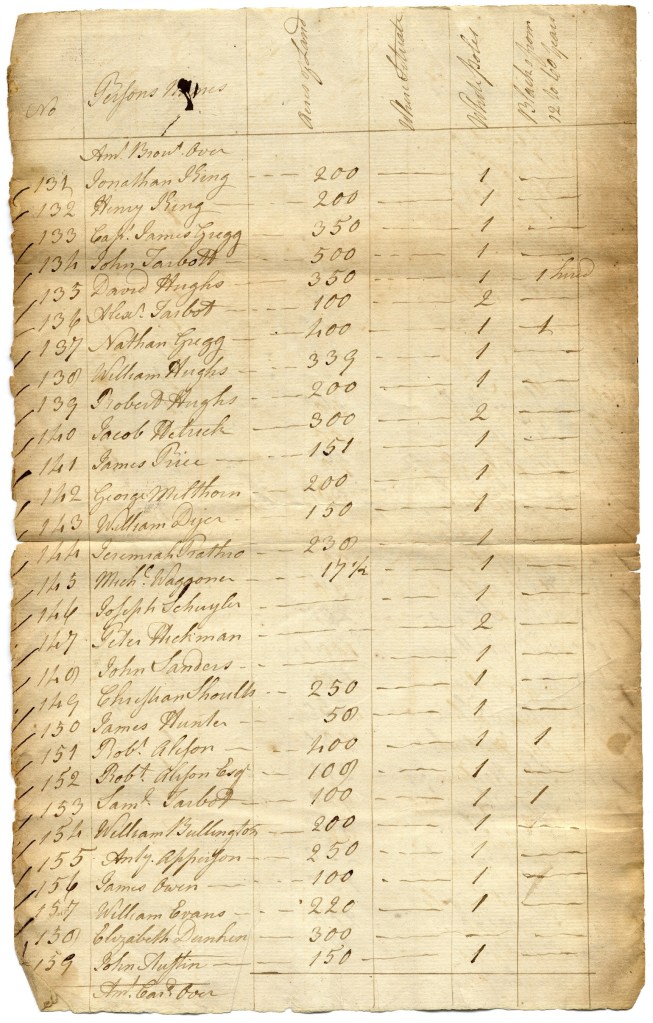 No Persons Names Acres of Land Where Situate White poles Blacks from 12 to 60 years
Amt. Browt. Over
131 Jonathan King 200 1
132 Henry King 200 1
133 Capt. James Gregg 350 1
134 John Tarbott 500 1
135 David Hughs 350 1 1 hired
136 Alexr. Tarbot 100 2
137 Nathan Gregg 400 1 1
138 William Hughs 339 1
139 Robert Hughs 200 1
140 Jacob Helrick 300 2
141 James Price 151 1
142 George Milthorn 200 1
143 William Dyer 150 1
144 Jeremiah Prathro 238 1
145 Michl. Waggoner 17 1/2 1
146 Joseph Schuyler 1
147 Peter Hickman 2
148 John Sanders 1
149 Christian Shoults 250 1
150 James Hunter 58 1
151 Robt. Alison 400 1 1
152 Robt. Alison Esqr 108 1
153 Saml. Tarbot 100 1 1
154 William Bullington 200 1
155 Anty. Apperson 250 1
156 James Owen 100 1
157 William Evans 220 1
158 Elizabeth Dunkin 300
159 John Austin 150 1
Amt. Card. Over